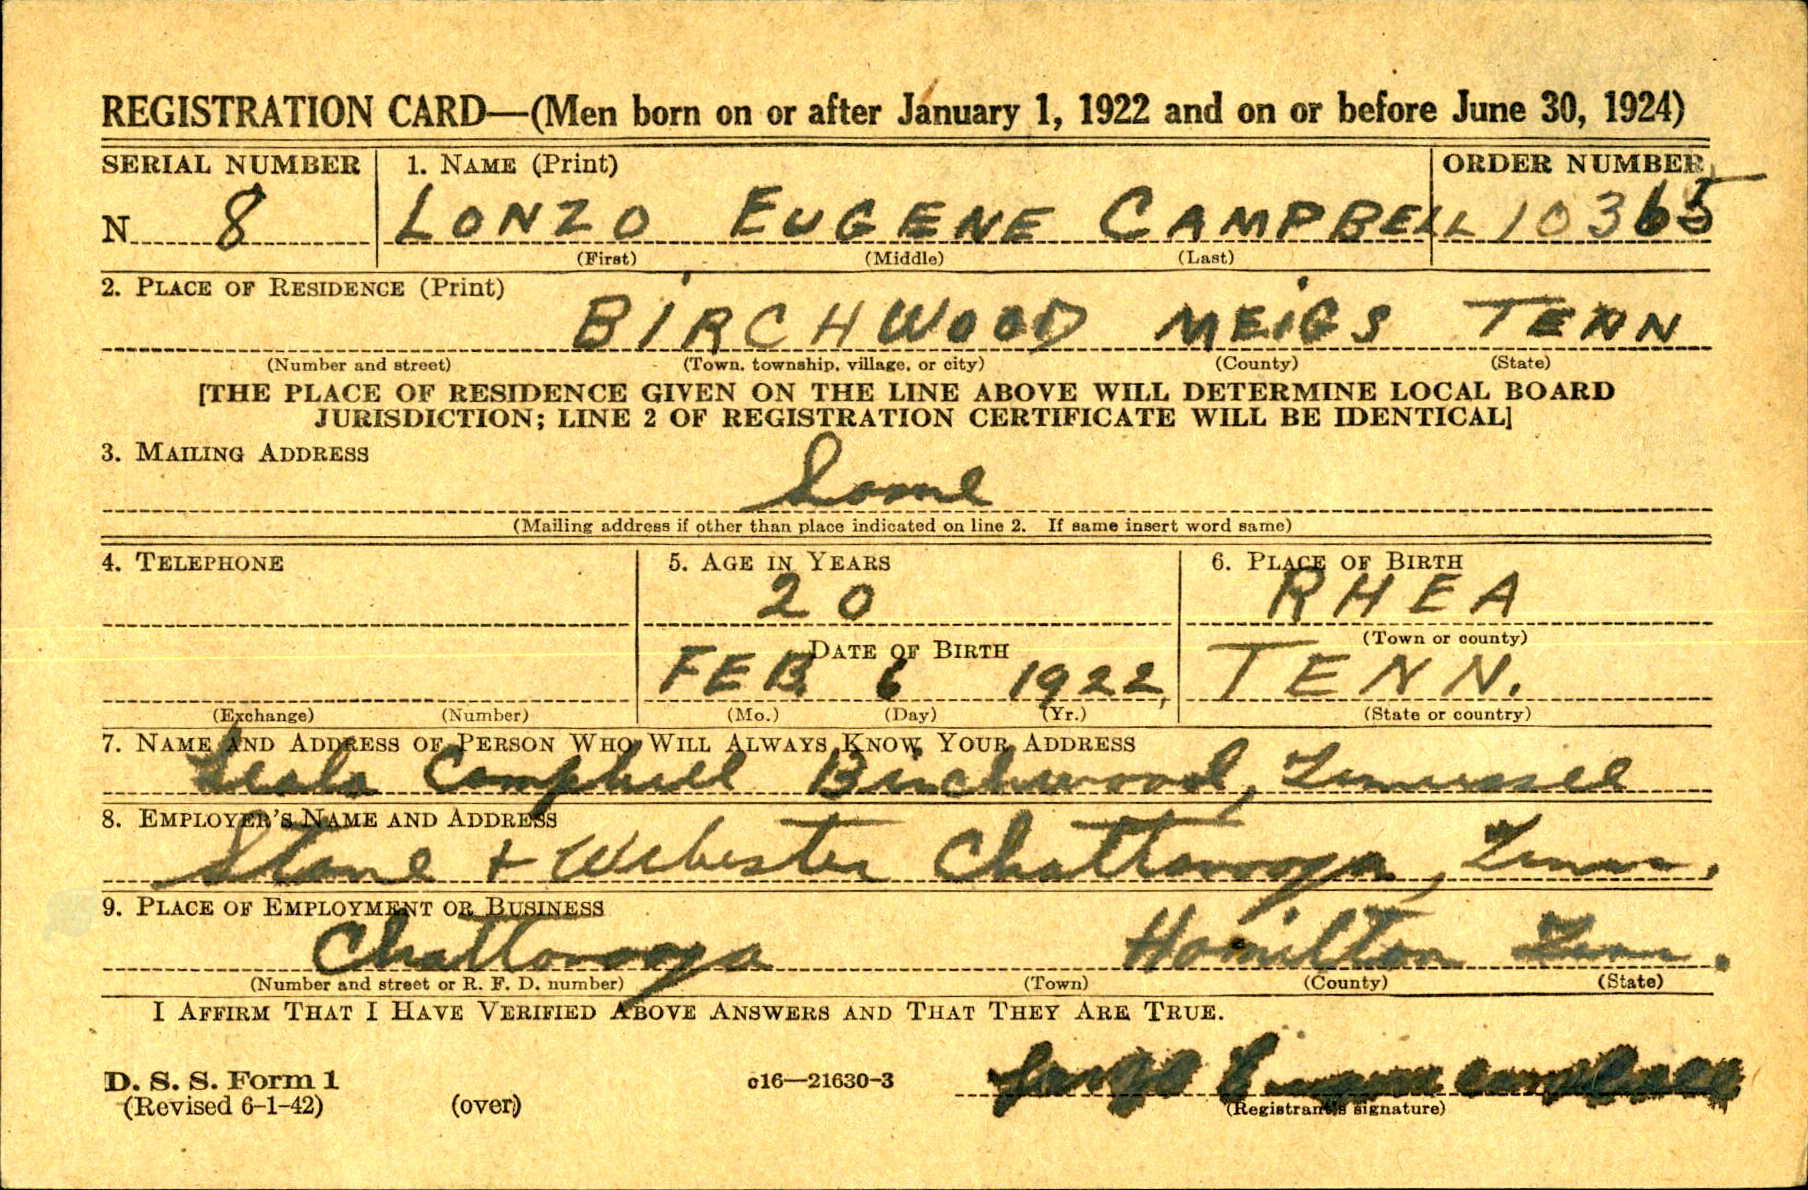 REGISTRATION CARD—(Men born on or after January 1, 1922 and on or before June 30, 1924)
SERIAL NUMBER 1. NAME (Print) ORDER NUMBER
N 8 LONZO EUGENE CAMPBELL 10365
(First) (Middle) (Last)
2. PLACE OF RESIDENCE (Print)
BIRCHWOOD MEIGS TENN
(Number and street) (Town, township, village, or city) (County) (State)
[THE PLACE OF RESIDENCE GIVEN ON THE LINE ABOVE WILL DETERMINE LOCAL BOARD
JURISDICTION; LINE 2 OF REGISTRATION CERTIFICATE WILL BE IDENTICAL]
3. MAILING ADDRESS
Same
(Mailing address if other than place indicated on line 2. If same insert word same)
4. TELEPHONE 5. AGE IN YEARS 6. PLACE OF BIRTH
20 RHEA
DATE OF BIRTH (Town or county)
FEB. 6 1922, TENN.
(Exchange) (Number) (Mo.) (Day) (Yr.) (State or country)
7. NAME AND ADDRESS OF PERSON WHO WILL ALWAYS KNOW YOUR ADDRESS
Campbell Birchwood, Tennessee
8. EMPLOYER'S NAME AND ADDRESS
Stone + Webester Chattanooga, Tenn.
9. PLACE OF EMPLOYMENT OR BUSINESS
Chattanooga Hamilton Tenn.
(Number and street or R. F. D. number) (Town) (County) (State)
I AFFIRM THAT I HAVE VERIFIED ABOVE ANSWERS AND THAT THEY ARE TRUE.
D. S. S. Form 1 c16—21630-3 Lonzo Eugene campbell
(Revised 6-1-42) (over) (Registrant's signature)